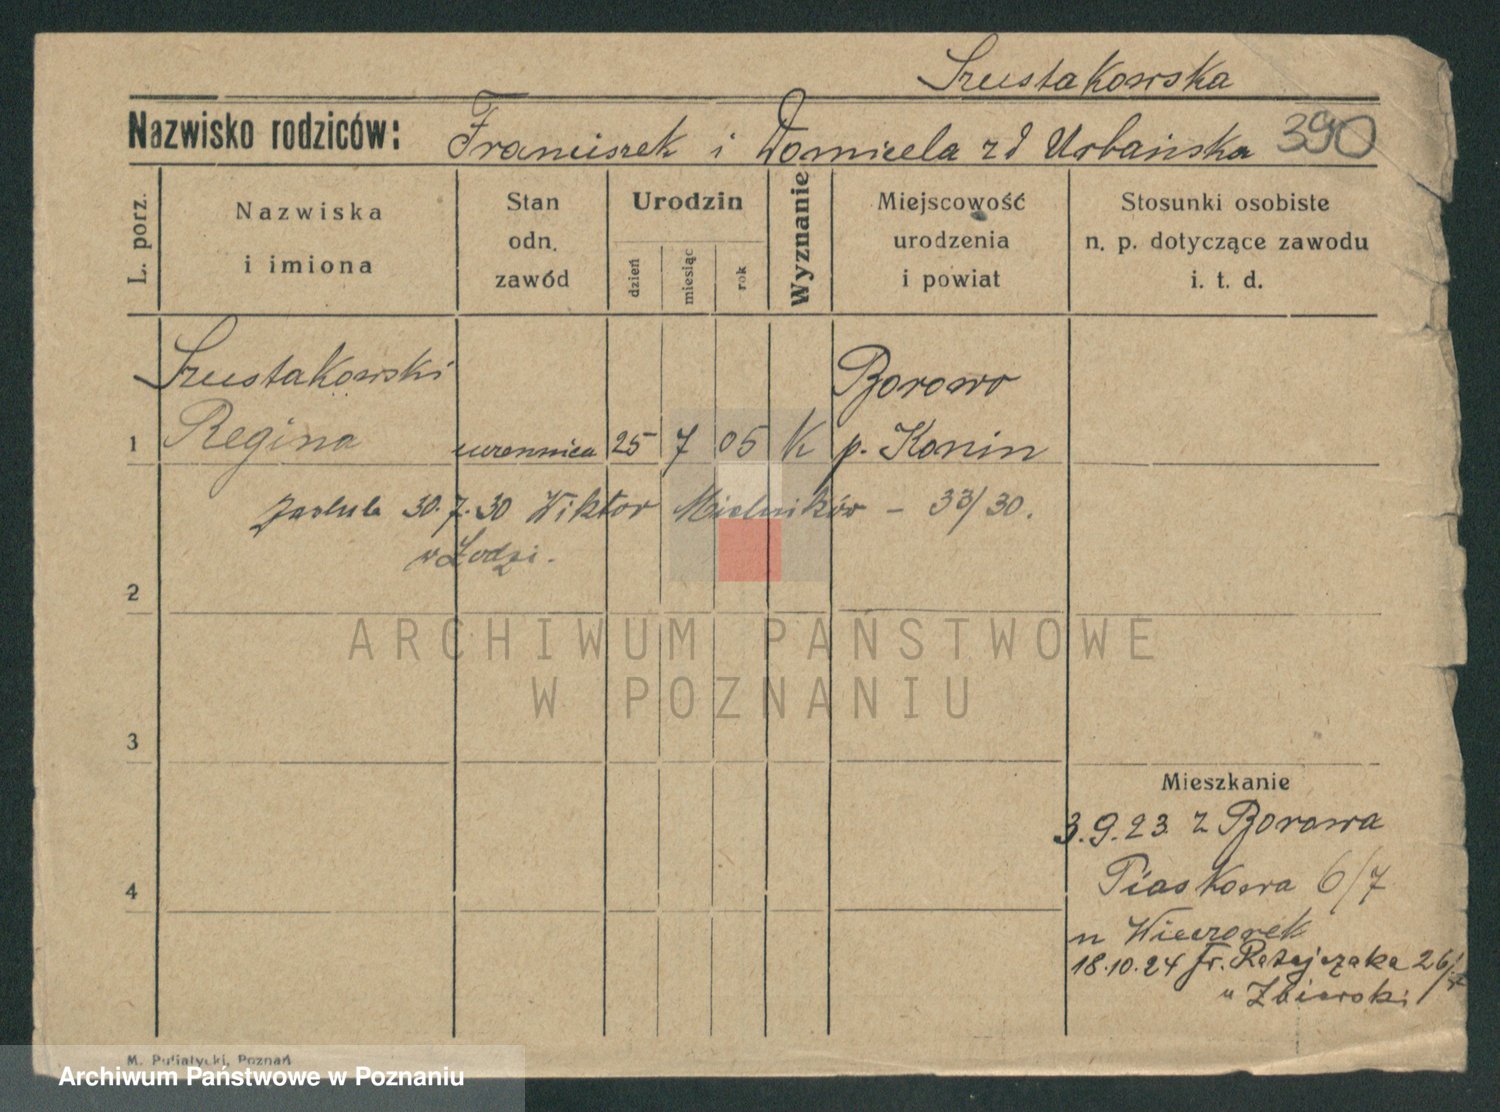 Szustakowska
Nazwisko rodziców: Franciszek i Domicela zd Urbańska 390
L. porz.
Nazwiska
i imiona
Stan
odn.
zawód
Urodzin
dzień
miesiąc
rok
Wyznanie
Miejscowość
urodzenia
i powiat
Stosunki osobiste
n. p. dotyczące zawodu
i. t. d.
Szustakowski Borowo
1 Regina uczennica 25 7 05 K p. Konin
30.7.30 Wiktor Mielnikór – 33/30.
w Łodzi.
2
ARCHIWUM PAŃSTWOWE
W POZNANIU
3
Mieszkanie
3.9.23 z Borowa
4 Piaskowa 6/7
u Wieczorek
18.10.24 Fr. Ratajczaka 26/
u Zbierski
M. Pujiatycki, Poznań
Archiwum Państwowe w Poznaniu